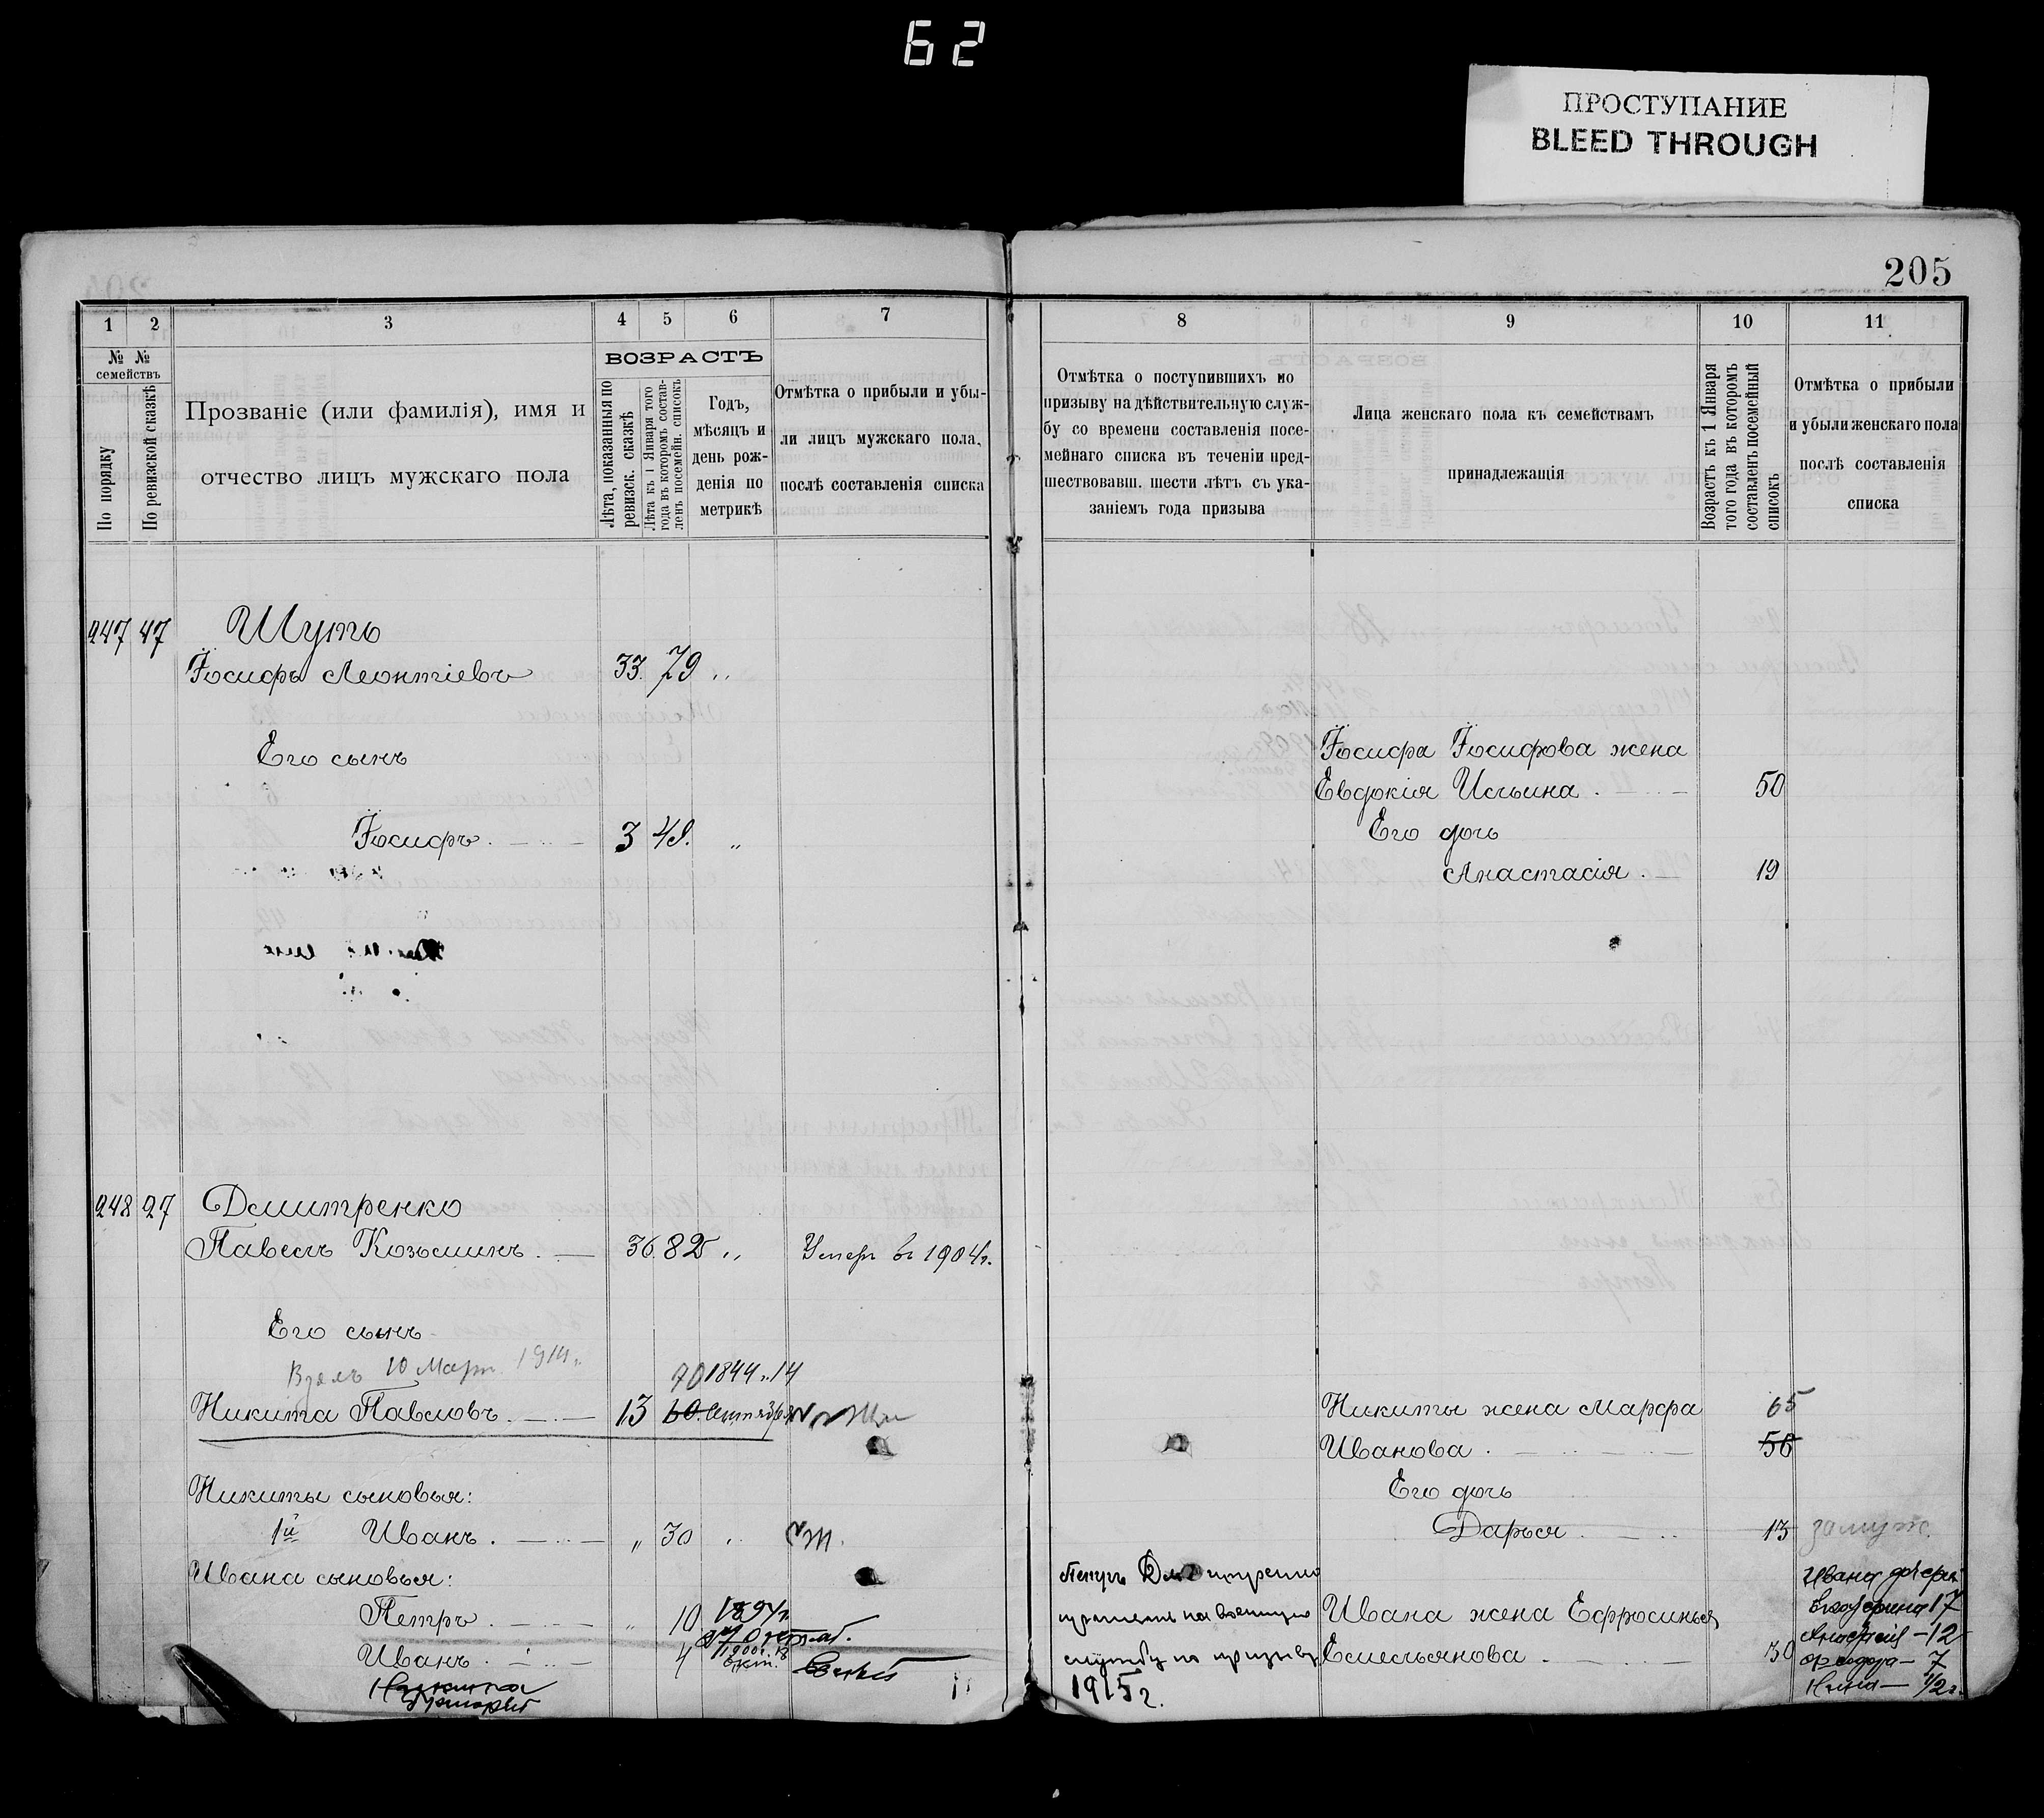 62
ПРОСТУПАНИЕ
BLEED THROUGH
205
1 2 3 4 5 6 7 8 9 10 11
№ № семействъ
По порядку
По ревизской сказкѣ
Прозваніе (или фамилія), имя и
отчество лицъ мужскаго пола
ВОЗРАСТЪ
Лѣта, показанныя по
ревизск. сказкѣ
Лѣта къ 1 Января того
года въ которомъ состав-
ленъ посемейн. списокъ
Годъ,
мѣсяцъ и
день рож-
денія по
метрикѣ
Отмѣтка о прибыли и убы-
ли лицъ мужскаго пола,
послѣ составленія списка
Отмѣтка о поступившихъ по
призыву на дѣйствительную служ-
бу со времени составленія посе-
мейнаго списка въ теченіи пред-
шествовавш. шести лѣтъ съ ука-
заніемъ года призыва
Лица женскаго пола къ семействамъ
принадлежащія
Возрастъ къ 1 Января
того года въ которомъ
составленъ посемейный
списокъ
Отмѣтка о прибыли
и убыли женскаго пола
послѣ составленія
списка
247 47 Шутъ
Іосифъ Леонтіевъ 33. 79 „
Его сынъ
Іосифъ 3 48. „
Іосифа Іосифова жена
Евдокія Ильина 50
Его дочь
Анастасія 19
248 27 Дмитренко
Павелъ Козьминъ 36. 82 „ Умеръ въ 1904 г.
Его сынъ
10 Март 1914 г.
70 1844 г. 14
Никита Павловъ 13 60
Никиты жена Марфа 65
Иванова 56
Никиты сыновья:
1й Иванъ „ 30
Его дочь
Дарья 13 замуж.
Ивана сыновья:
Петръ „ 10 1894 г.
Иванъ 4 1900 г.
Окт.
Никита
службу по призыву
1915 г.
Ивана жена Ефросинья
Емельянова 30
Ивана дочери
17
12
7
1/2 г.